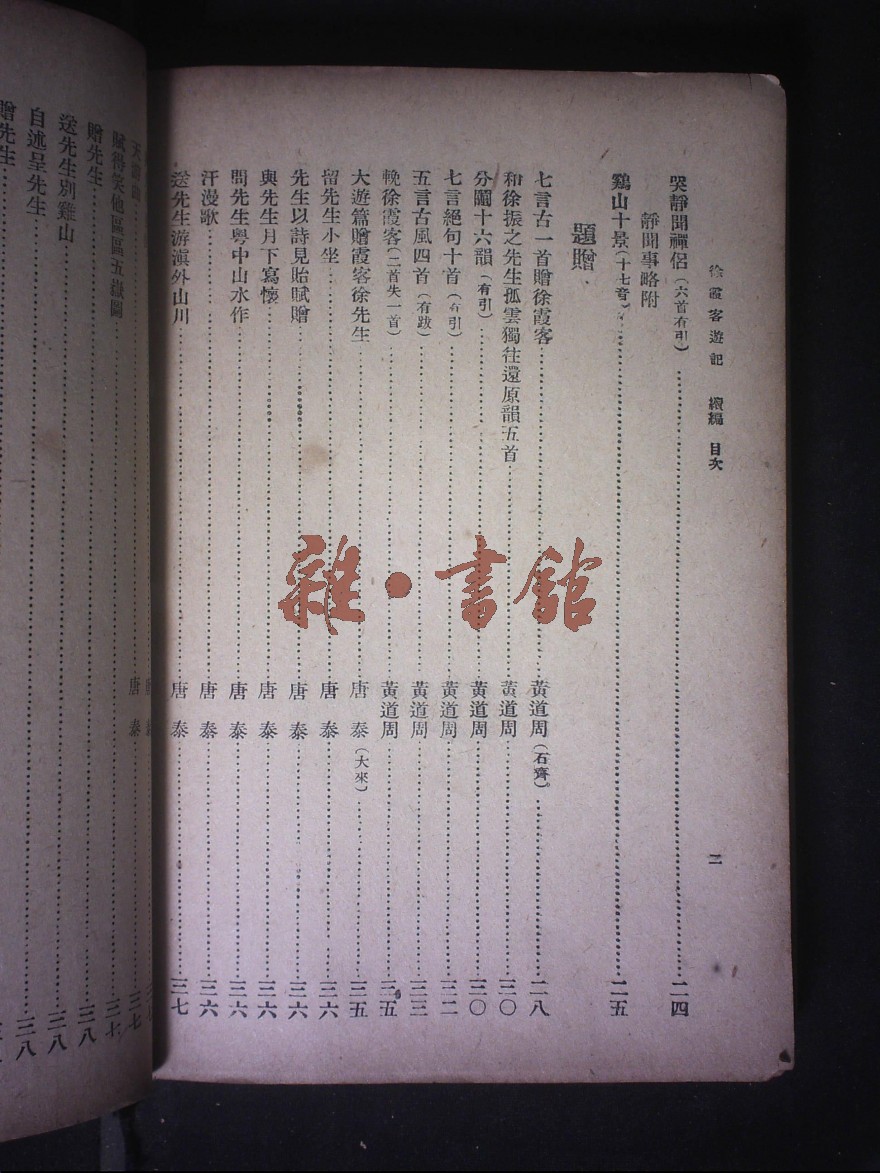 徐霞客遊記 續編 目次 二
哭靜聞禪侶(六首有引)……二四
靜聞事略附
鷄山十景(十七首)……二五
題贈
七言古一首贈徐霞客……黃道周(石齋)……二八
和徐振之先生孤雲獨往還原韻五首……黃道周……三〇
分鬮十六韻(有引)……黃道周……三〇
七言絕句十首(有引)……黃道周……三二
五言古風四首(有跋)……黃道周……三三
輓徐霞客(二首失一首)……黃道周……三五
大遊篇贈霞客徐先生……唐泰(大來)……三五
留先生小坐……唐泰……三六
先生以詩見貽賦贈……唐泰……三六
與先生月下寫懷……唐泰……三六
問先生粵中山水作……唐泰……三六
汗漫歌……唐泰……三六
送先生游滇外山川……唐泰……三七
唐泰……三七
賦得笑他區區五嶽圖……三七
贈先生……三八
送先生別雞山……三八
自述呈先生……三八
贈先生……
雜·書館